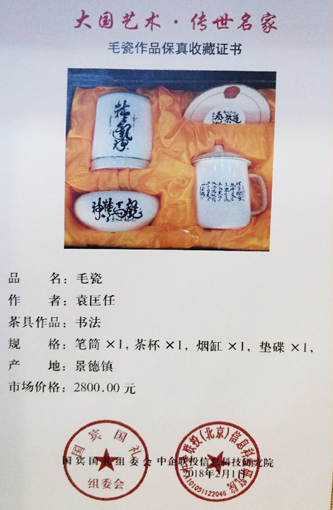 大国艺术·传世名家
毛瓷作品保真收藏证书
品 名：毛瓷
作 者：袁匡任
茶具作品：书法
规 格：笔筒×1，茶杯×1，烟缸×1，垫碟×1，
产 地：景德镇
市场价格：2800.00 元
国宾国礼组委会 中企联投信息科技研究院
2018年2月1日
国宾国礼
组委会
1101051122046